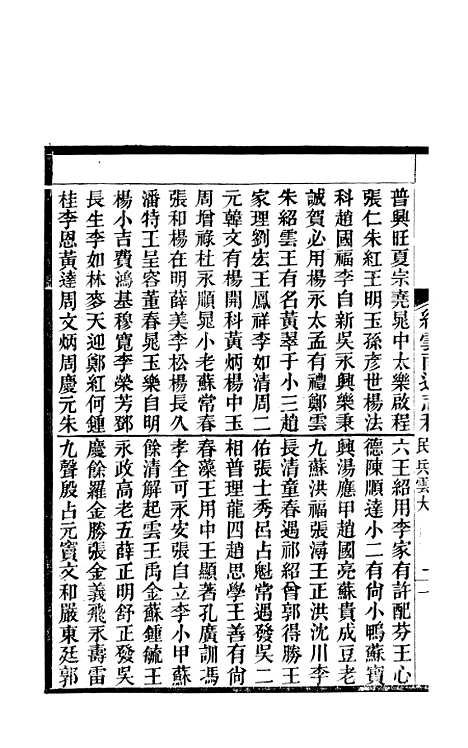 普興旺夏宗堯晁中太樂啟程
張仁朱紅王明玉孫彥世楊法
科趙國福李自新吳永興樂秉
誠賀必用楊永太孟有禮鄭雲
朱紹雲王有名黃翠于小三趙
家理劉宏王鳳祥李如清周二
元韓文有楊開科黃炳楊中玉
周增祿杜永順晁小老蘇常春
張和楊在明薛美李松楊長久
潘特王呈容董春晁玉樂自明
楊小吉費鴻基穆寬李榮芳鄧
長生李如林麥天迎鄭紅何鍾
桂李恩黃達周文炳周慶元朱
六王紹用李家有許配芬王心
德陳順達小二有尙小鴨蘇寶
興湯應甲趙國亮蘇貴成豆老
九蘇洪福張潯王正洪沈川李
長清童春遇祁紹曾郭得勝王
佑張士秀呂占魁常遇發吳二
相普理龍四趙思學王善有尙
春藻王用中王顯著孔廣訓馮
李全可永安張自立李小甲蘇
餘清解起雲王禹金蘇鍾毓王
永政高老五薛正明舒正發吳
慶餘羅金勝張金義飛永壽雷
九聲殷占元竇文和嚴東廷郭